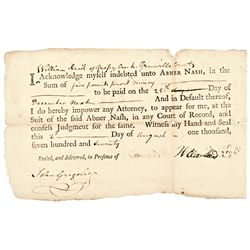 I William Hust of Grassy Creek Granville County
Acknowledge myself indebted unto ABNER NASH, in the
Sum of five pounds proc money
to be paid on the 25th Day of
December Next And in Default thereof,
I do hereby impower any Attorney, to appear for me, at the
Suit of the said Abner Nash, in any Court of Record, and
confess Judgment for the same. Witness my Hand and Seal
this 2 Day of August one thousand,
seven hundred and seventy
Sealed, and delivered, in Presence of
John Gregorie